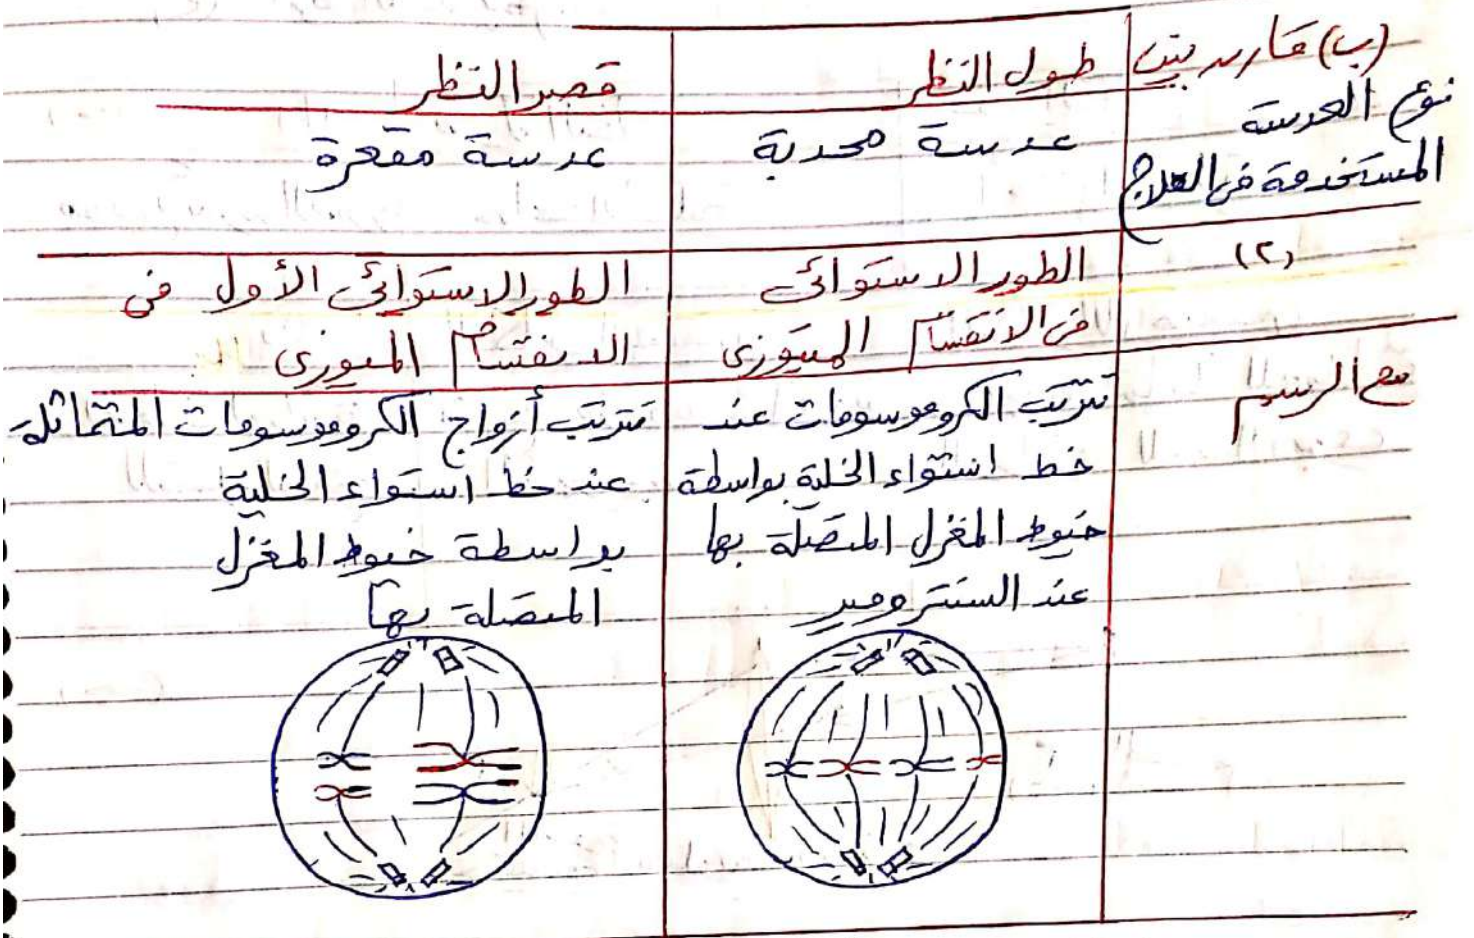 (ب) قارن بين
طول النظر
قصر النظر
نوع العدسة
المستخدمة في العلاج
عدسة محدبة
عدسة مقعرة
(٢)
الطور الاستوائى
فى الانقسام الميتوزى
الطور الاستوائى الأول فى
الانقسام الميوزى
مع الرسم
تترتب الكروموسومات عند
خط استواء الخلية بواسطة
خيوط المغزل المتصلة بها
عند السنترومير
تترتب أزواج الكروموسومات المتماثلة
عند خط استواء الخلية
بواسطة خيوط المغزل
المتصلة بها